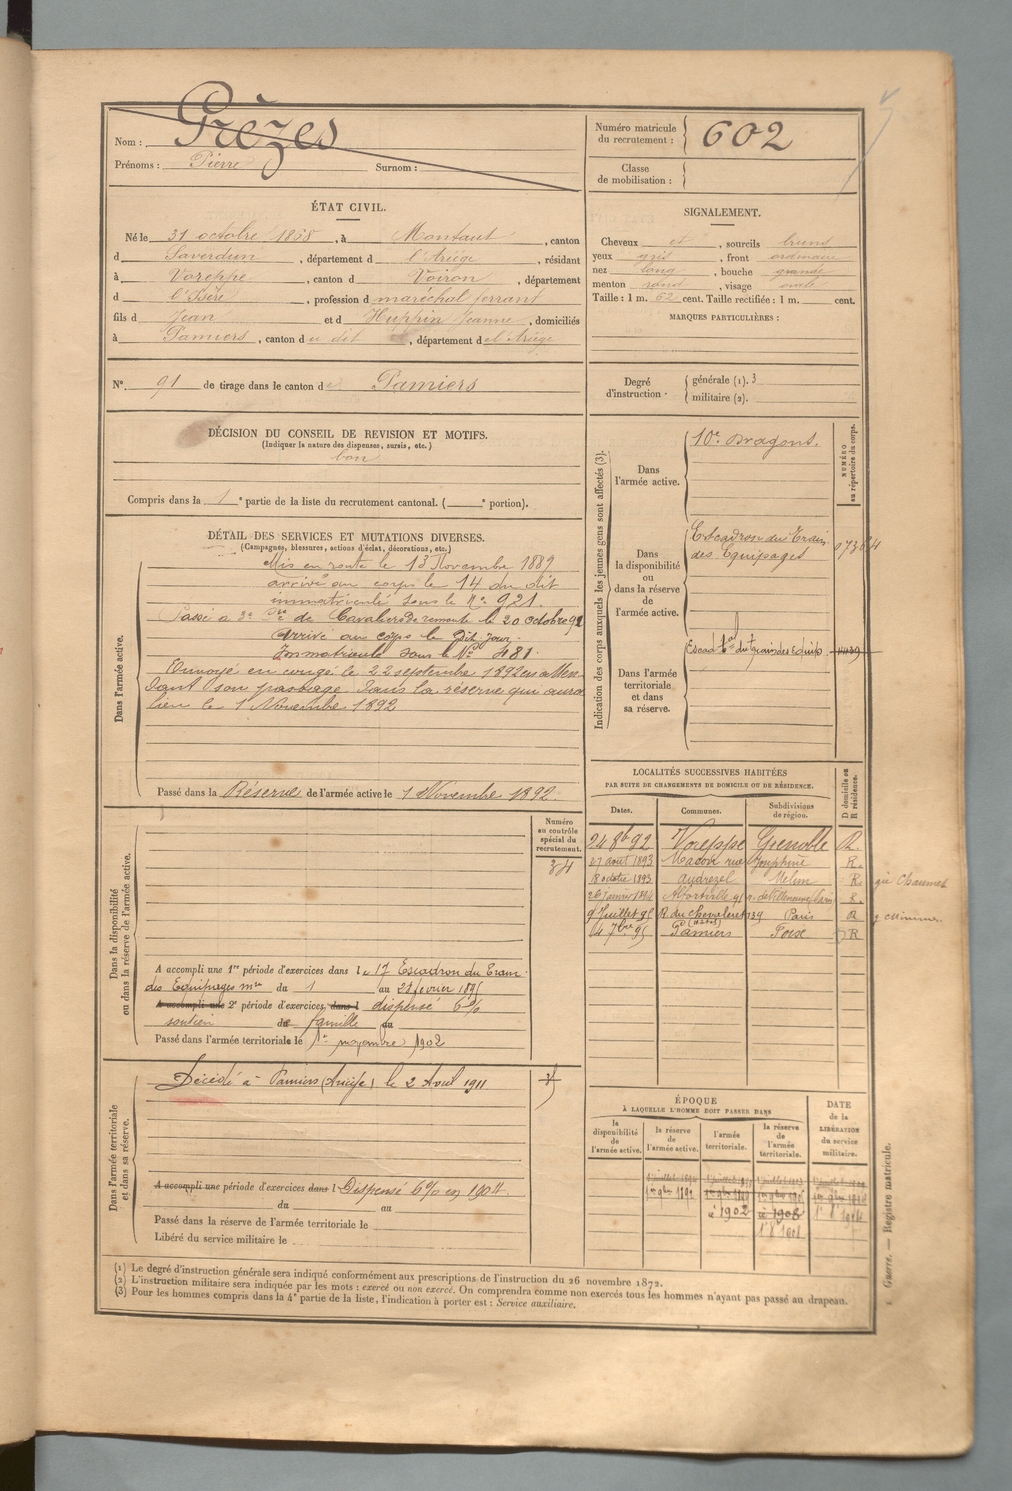 Nom : Grèzes
Prénoms : Pierre Surnom :
Numéro matricule du recrutement : 602
Classe de mobilisation :
ÉTAT CIVIL.
Né le 31 octobre 1868, à Montaut, canton
d Saverdun, département d l'Ariége, résidant
à Voreppe, canton d Voiron, département
d l'Isère, profession d maréchal ferrant
fils d Jean et d Huppin Jeanne, domiciliés
à Pamiers, canton du dit, département del'Ariége
N° 91 de tirage dans le canton de Pamiers
DÉCISION DU CONSEIL DE REVISION ET MOTIFS.
(Indiquer la nature des dispenses, sursis, etc.)
bon
Compris dans la 1e partie de la liste du recrutement cantonal. ( e portion).
DÉTAIL DES SERVICES ET MUTATIONS DIVERSES.
(Campagnes, blessures, actions d'éclat, décorations, etc.)
Dans l'armée active.
Mis en route le 13 Novembre 1889
arrivé au corps le 14 du dit
immatriculé sous le N° 921.
Passé à 3e Cie de Cavaliers de remonte le 20 octobre 91
Arrivé au corps le Dit jour.
Immatriculé sous le N° 481.
Envoyé en congé le 22 septembre 1892 en atten
dant son passage dans la réserve qui aura
lieu le 1 Novembre 1892
Passé dans la Réserve de l'armée active le 1 Novembre 1892.
Dans la disponibilité ou dans la réserve de l'armée active.
Numéro au contrôle spécial du recrutement.
34
A accompli une 1re période d'exercices dans le 17 Escadron du Train
des Equipages mre du 1 au 23 février 1895
A accompli une 2e période d'exercices dans l dispensé 6%
soutien de famille au
Passé dans l'armée territoriale le 1er novembre 1902
Dans l'armée territoriale et dans sa réserve.
Décédé à Pamiers (Ariége) le 2 Aout 1911
A accompli une période d'exercices dans l Dispensé 6% en 1904.
du au
Passé dans la réserve de l'armée territoriale le
Libéré du service militaire le
SIGNALEMENT.
Cheveux et, sourcils bruns
yeux gris, front ordinaire
nez long, bouche grande
menton rond, visage ovale
Taille : 1 m. 62 cent. Taille rectifiée : 1 m. cent.
MARQUES PARTICULIÈRES :
Degré d'instruction
générale (1). 3
militaire (2).
Indication des corps auxquels les jeunes gens sont affectés (3).
NUMÉRO au répertoire du corps.
Dans l'armée active.
10e Dragons.
Dans la disponibilité ou dans la réserve de l'armée active.
Escadron du Train
des Equipages
Dans l'armée territoriale et dans sa réserve.
Escad. du train des Equip.
LOCALITÉS SUCCESSIVES HABITÉES
PAR SUITE DE CHANGEMENTS DE DOMICILE OU DE RÉSIDENCE.
Dates. Communes. Subdivisions de région. D domicile ou R résidence.
24 8b 92 Voreppe Grenoble R.
27 aout 1893 Macon rue Joséphine R.
8 octobre 1893 Audrezel Melun R.
26 janvier 1894 Alfortville r. de Villeneuve Paris
9 Juillet 95 R. du Chevaleret 139 Paris R
4 7bre 95 Pamiers Foix R
ÉPOQUE
À LAQUELLE L'HOMME DOIT PASSER DANS
la disponibilité de l'armée active.
la réserve de l'armée active.
l'armée territoriale.
la réserve de l'armée territoriale.
DATE de la LIBÉRATION du service militaire.
1er 9bre 1892
1902 1908
(1) Le degré d'instruction générale sera indiqué conformément aux prescriptions de l'instruction du 26 novembre 1872.
(2) L'instruction militaire sera indiquée par les mots : exercé ou non exercé. On comprendra comme non exercés tous les hommes n'ayant pas passé au drapeau.
(3) Pour les hommes compris dans la 4e partie de la liste, l'indication à porter est : Service auxiliaire.
Guerre. — Registre matricule.